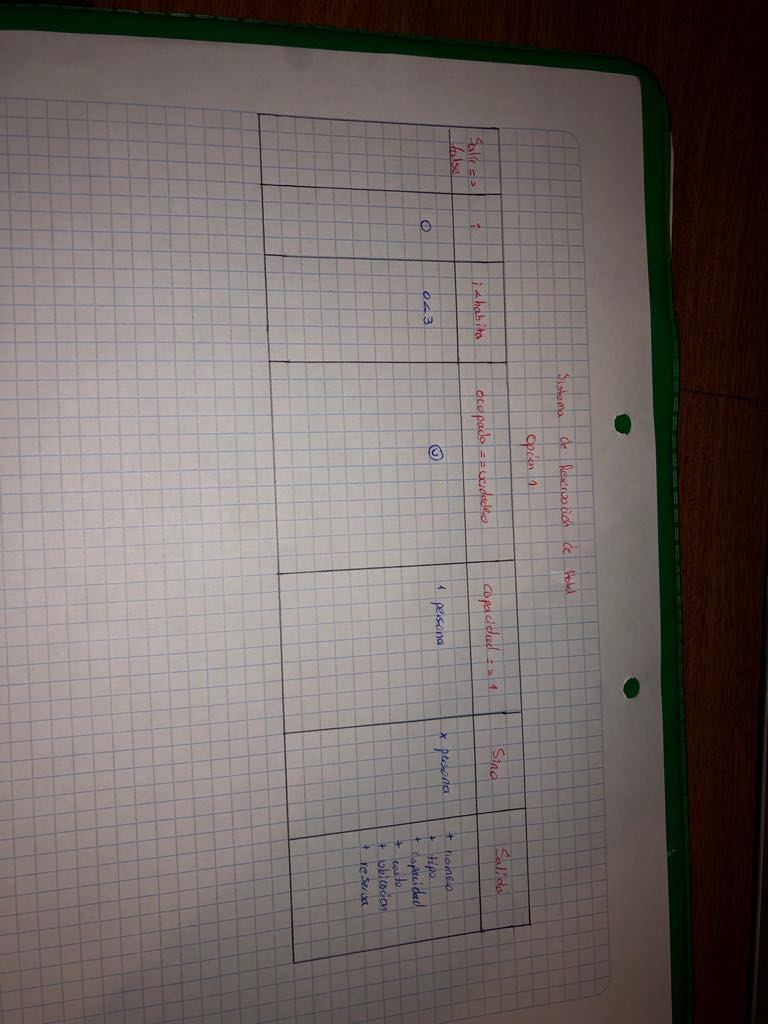 Sistema de Reservación de Hotel
Opción 1.
Salir == false
i
i < habita
ocupada == verdadero
capacidad == 1
Sino
Salida
0
0<3
V
1 persona
x persona
+ numero
+ tipo
+ capacidad
+ costo
+ ubicacion
+ reserva